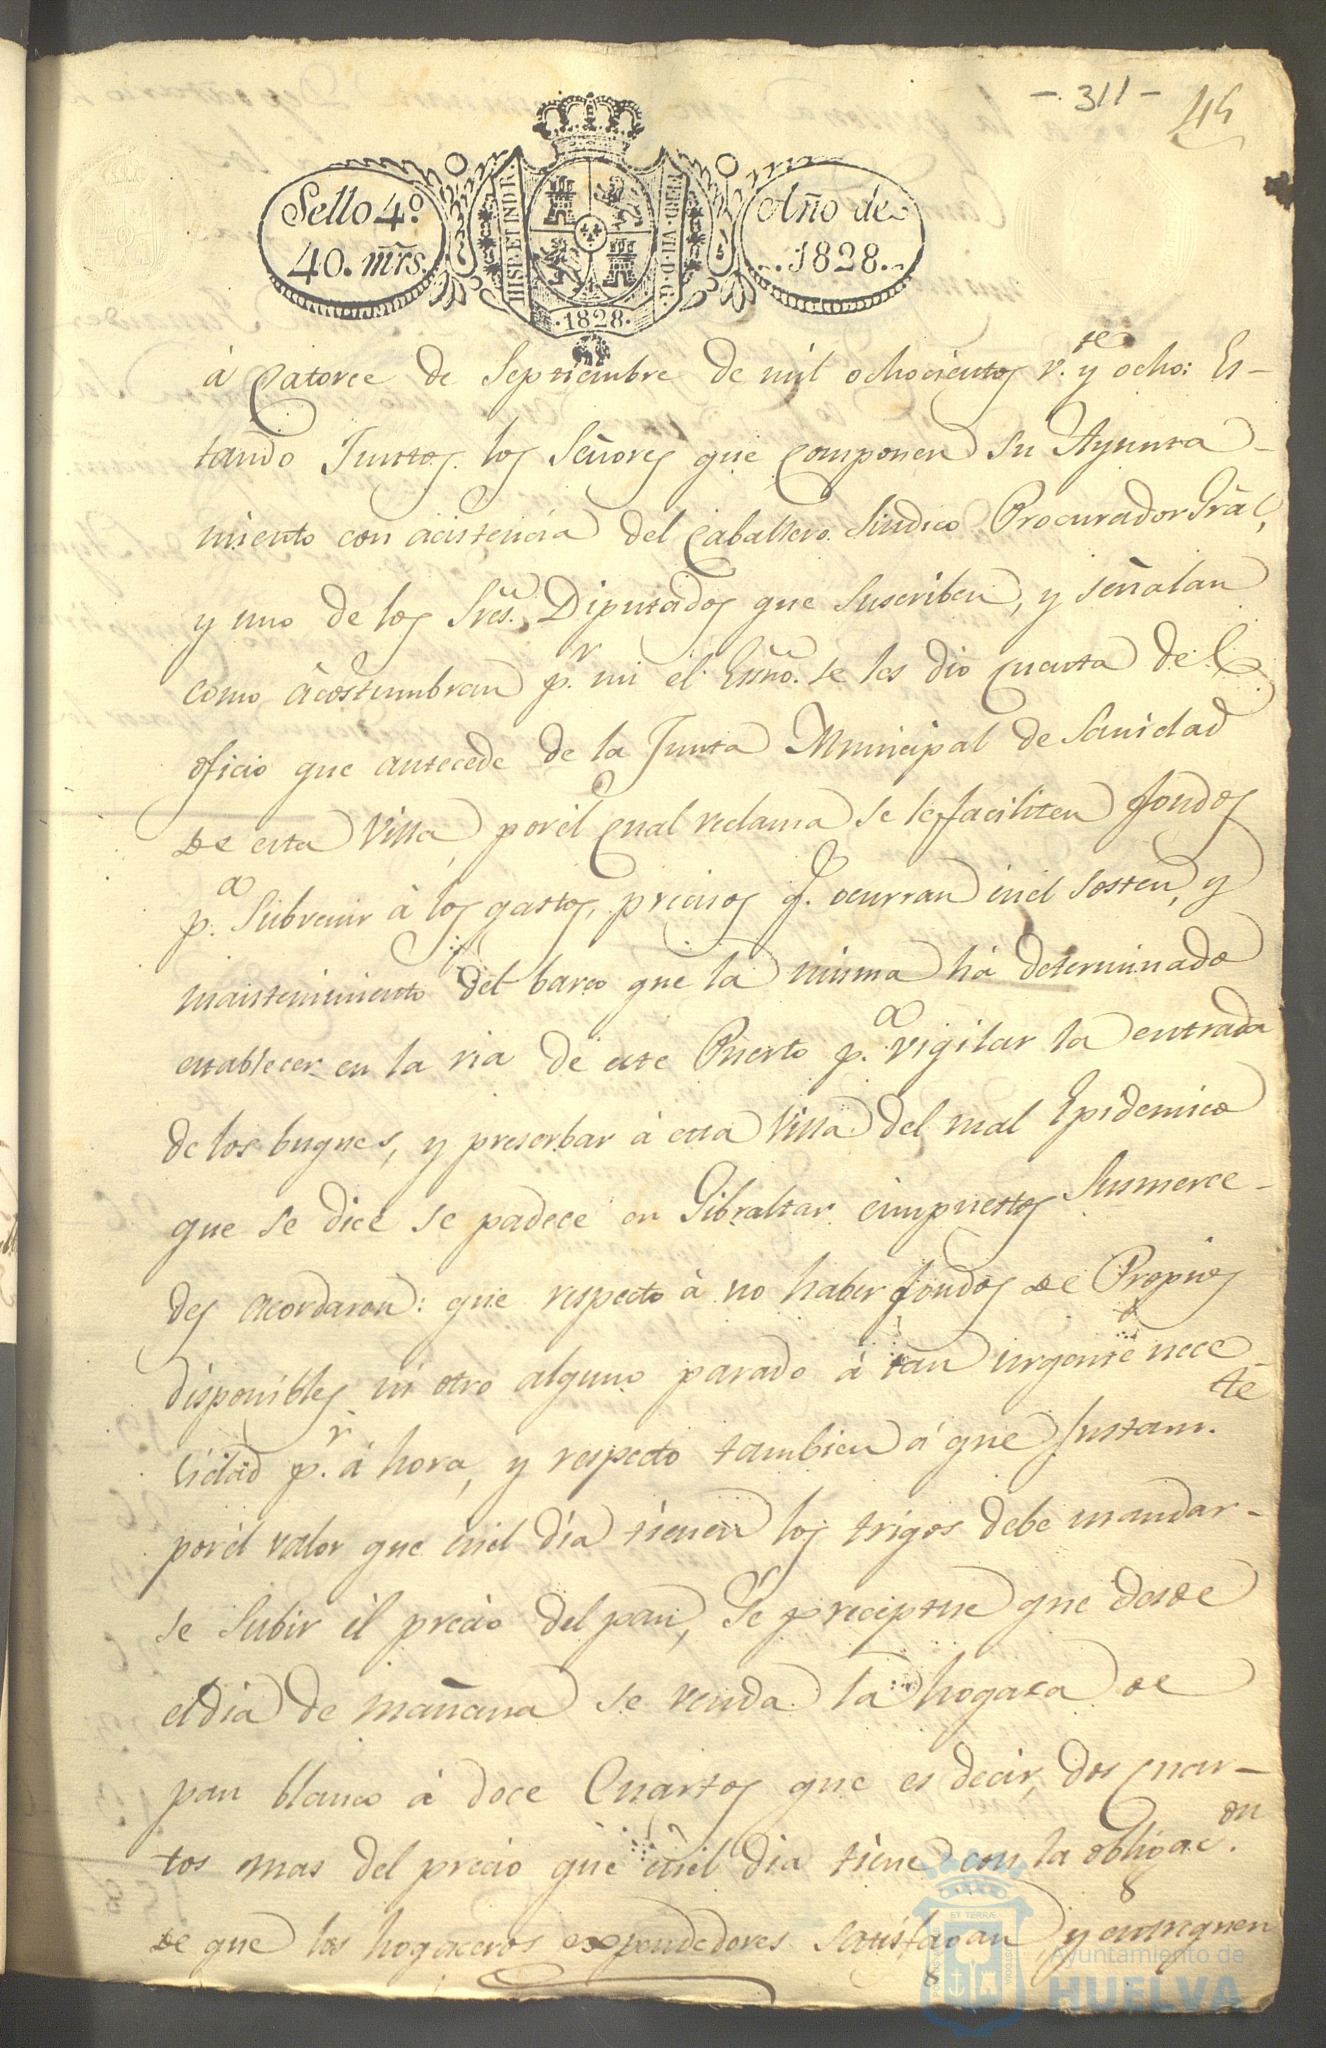 - 311 -
45
Sello 4º
40. mrs.
HISP. ET IND R.
FERD. VII. D. G.
.1828.
Año de
..1828..
à Catorce de Septiembre de mil ochocientos v.te y ocho: Es-
tando Juntos los Señores que componen su Ayunta-
miento con acistencia del Caballero Sindico Procurador Grãl,
y uno de los Sres. Diputados que Suscriben, y señalan
como acostumbran p.r mi el Essno. se les dio cuenta del
oficio que antecede de la Junta Municipal de Sanidad
de esta Villa, por el qual reclama se le faciliten fondos
p.a Subvenir à los gastos, precisos q. ocurran enel sosten, y
mantenimiento del barco que la misma há determinado
establecer en la ria de este Puerto p.a vigilar la entrada
de los buques, y preserbar à esta Villa del mal Epidemico
que se dice se padece en Gibraltar é impuestos Susmerce-
des acordaron: que respecto à no haber fondos de Propios
disponibles ni otro alguno parado à tan urgente nece-
cidad p.r á hora, y respecto tambien á que Justam.te
por el valor que enel dia tienen los trigos debe mandar-
se Subir el precio del pan, Se preceptue que desde
el dia de mañana se venda la hogaza de
pan blanco à doce Cuartos que es decir, dos Cuar-
tos mas del precio que enel dia tiene con la obligac.on
de que los hogaceros expendedores satisfagan, y entreguen
ET TERRÆ
Ayuntamiento de
HUELVA